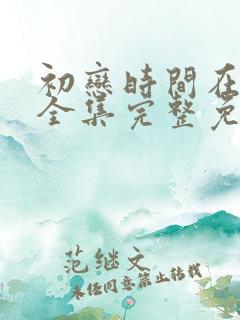 初戀時間在
全集完整免
范继文
未经同意禁止转载